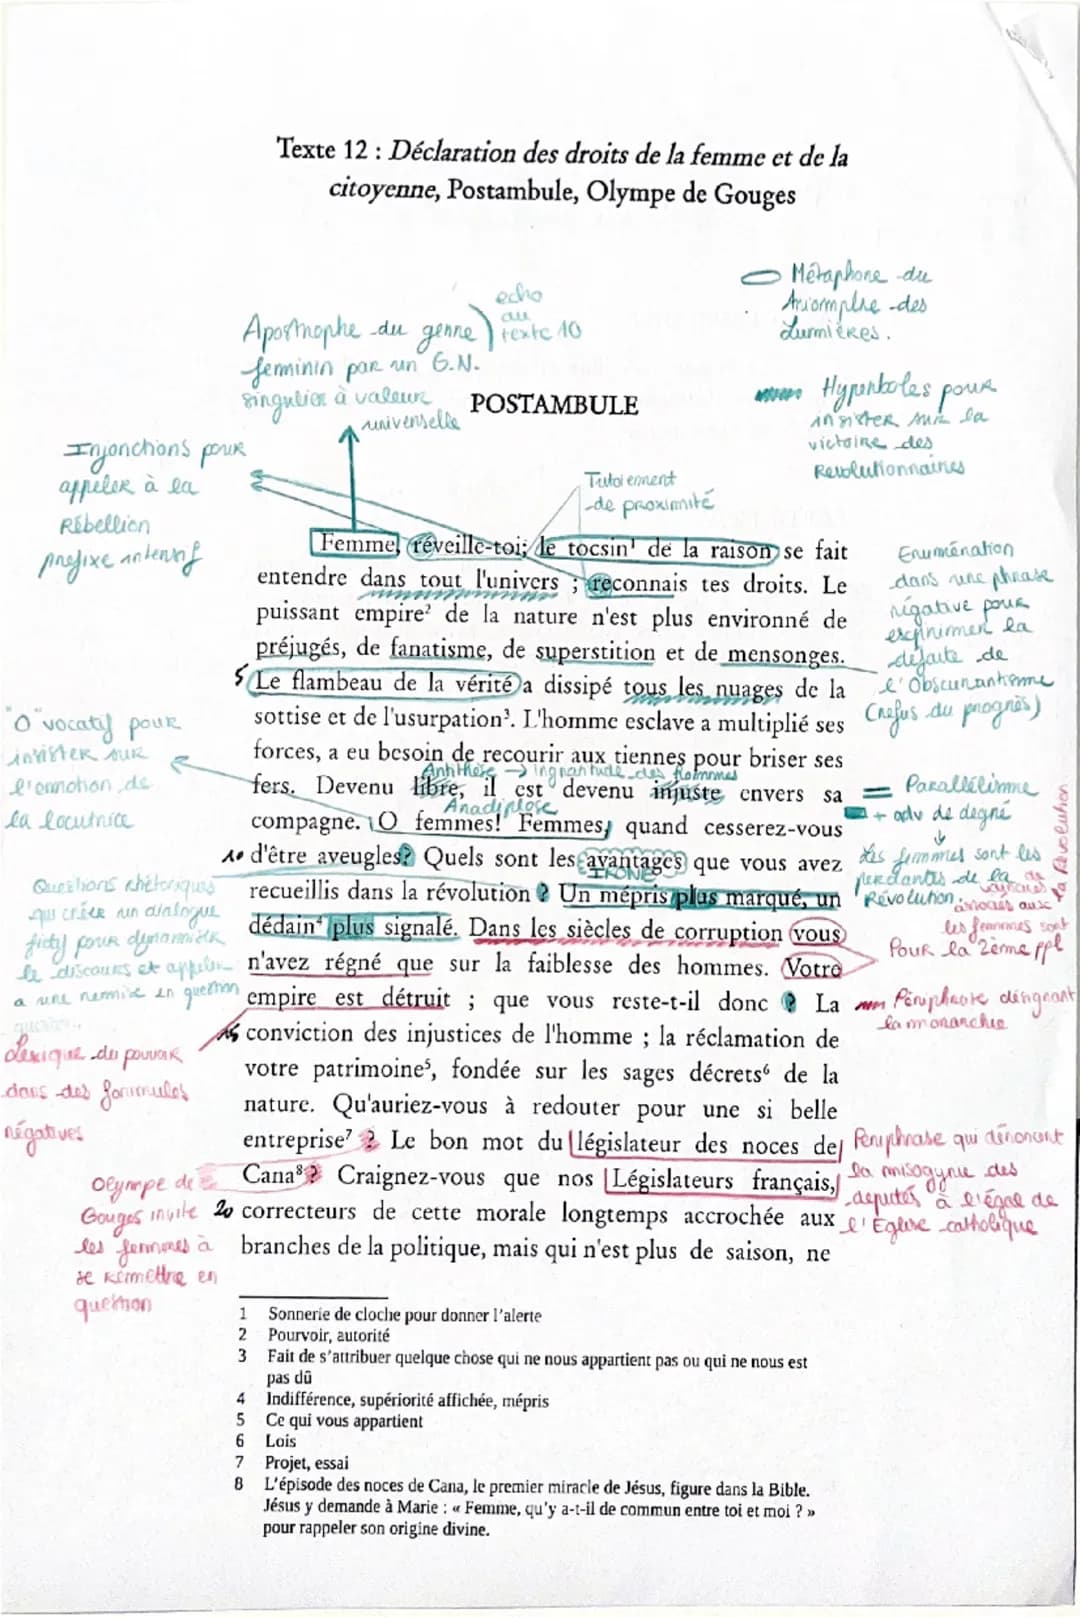 Texte 12 : Déclaration des droits de la femme et de la
citoyenne, Postambule, Olympe de Gouges
Métaphore du
triomphe des
Lumières.
echo
au
texte 10
Apostrophe du genre
feminin par un G.N.
singulier à valeur
universelle
Hyperboles pour
insister sur la
victoire des
Révolutionnaires
POSTAMBULE
Injonctions pour
appeler à la
Rébellion
prefixe intensif
Tutoiement
de proximité
Femme, réveille-toi; le tocsin¹ de la raison se fait
entendre dans tout l'univers ; reconnais tes droits. Le
puissant empire² de la nature n'est plus environné de
préjugés, de fanatisme, de superstition et de mensonges.
5 Le flambeau de la vérité a dissipé tous les nuages de la
sottise et de l'usurpation³. L'homme esclave a multiplié ses
forces, a eu besoin de recourir aux tiennes pour briser ses
Antithèse → ingratitude des hommes
fers. Devenu libre, il est devenu injuste envers sa
Anadiplose
compagne. O femmes! Femmes, quand cesserez-vous
10 d'être aveugles? Quels sont les avantages que vous avez
IRONIE
recueillis dans la révolution ? Un mépris plus marqué, un
dédain⁴ plus signalé. Dans les siècles de corruption vous
n'avez régné que sur la faiblesse des hommes. Votre
empire est détruit ; que vous reste-t-il donc ? La
15 conviction des injustices de l'homme ; la réclamation de
votre patrimoine⁵, fondée sur les sages décrets⁶ de la
nature. Qu'auriez-vous à redouter pour une si belle
entreprise⁷ ? Le bon mot du législateur des noces de
Cana⁸ ? Craignez-vous que nos Législateurs français,
20 correcteurs de cette morale longtemps accrochée aux
branches de la politique, mais qui n'est plus de saison, ne
Enumération
dans une phrase
négative pour
exprimer la
défaite de
l'Obscurantisme
(refus du progrès)
"O" vocatif pour
insister sur
l'emotion de
la locutrice
= Parallélisme
+ adv de degré
↓
Les femmes sont les
perdantes de la
Révolution.
associés aux
la Révolution
les femmes sont
Pour la 2ème ppl
Questions rhétoriques
qui crée un dialogue
fictif pour dynamiser
le discours et appeler
a une remise en question
Périphrase désignant
la monarchie
Lexique du pouvoir
dans des formules
négatives
Périphrase qui dénoncent
la misogynie des
députés à l'égal de
l'Eglise catholique
Olympe de
Gouges invite
les femmes à
se remettre en
question
1 Sonnerie de cloche pour donner l'alerte
2 Pourvoir, autorité
3 Fait de s'attribuer quelque chose qui ne nous appartient pas ou qui ne nous est
pas dû
4 Indifférence, supériorité affichée, mépris
5 Ce qui vous appartient
6 Lois
7 Projet, essai
8 L'épisode des noces de Cana, le premier miracle de Jésus, figure dans la Bible.
Jésus y demande à Marie : « Femme, qu'y a-t-il de commun entre toi et moi ? »
pour rappeler son origine divine.